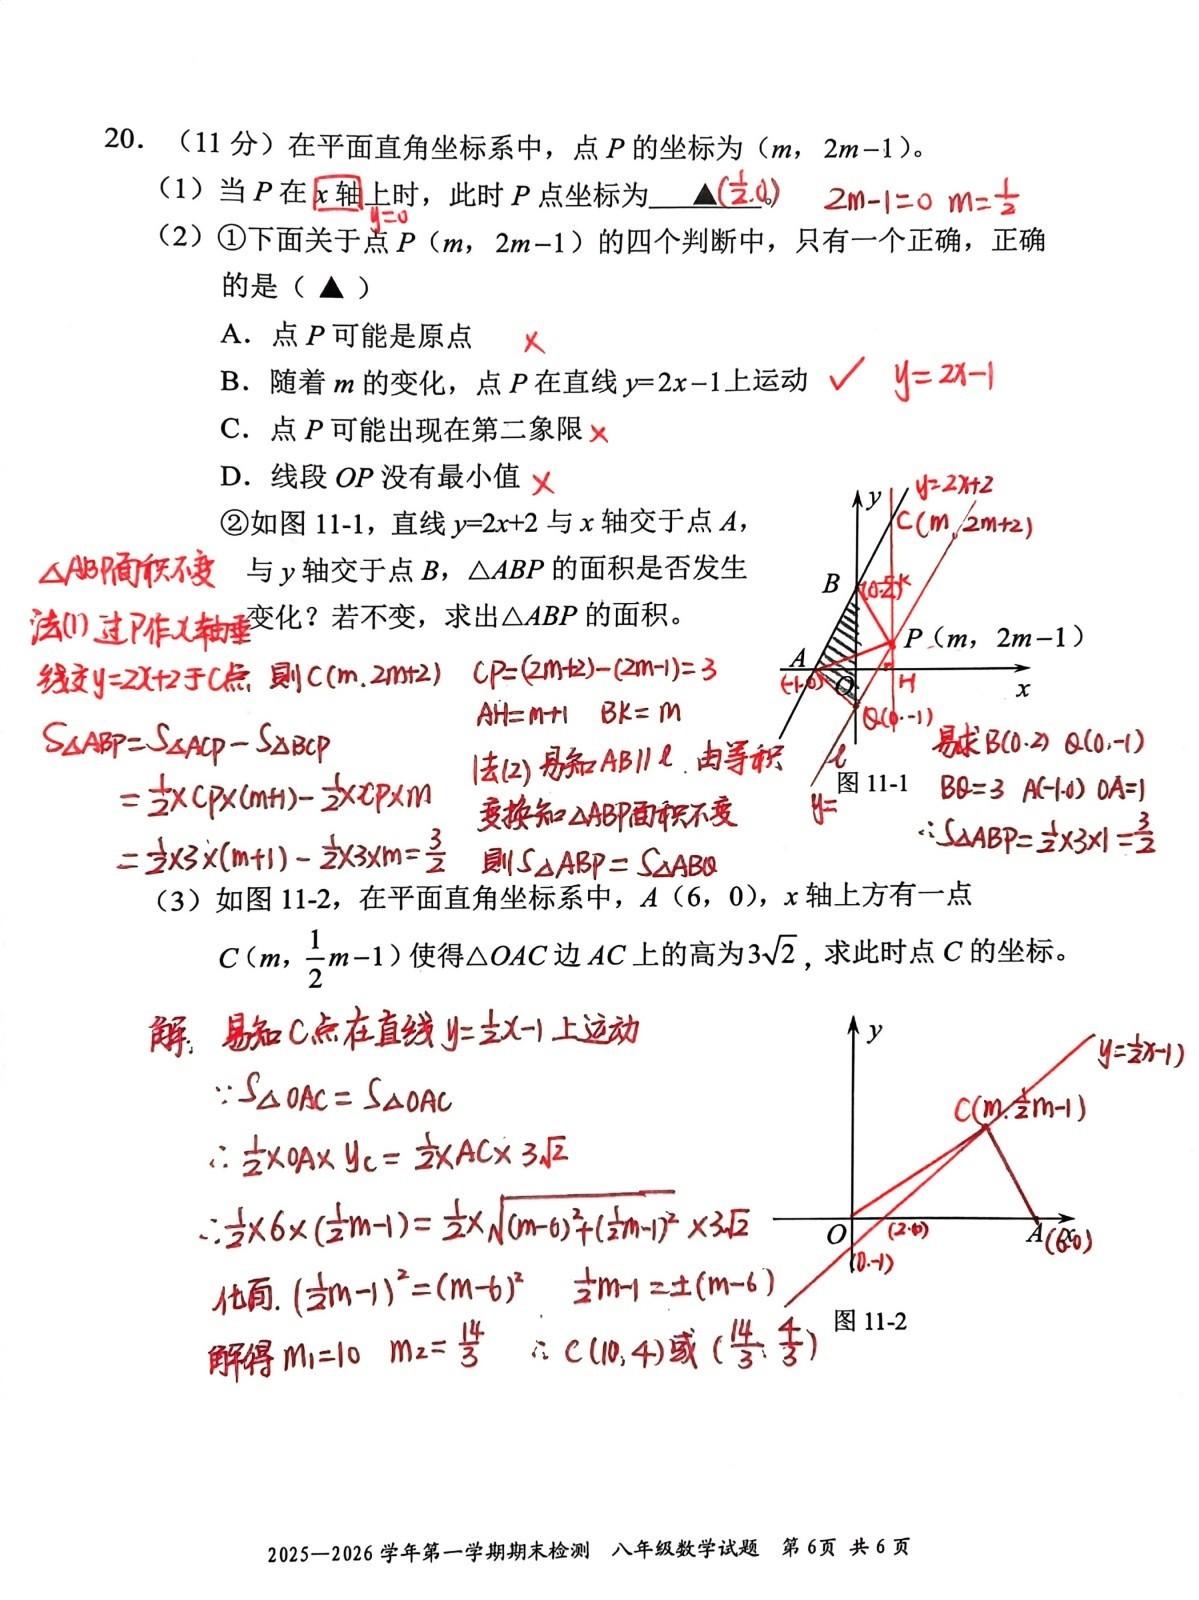 20. （11 分）在平面直角坐标系中，点 P 的坐标为（m， 2m－1）。
（1）当 P 在 x 轴上时，此时 P 点坐标为 ▲ 。 (1/2, 0) 2m-1=0 m=1/2
y=0
（2）①下面关于点 P（m， 2m－1）的四个判断中，只有一个正确，正确
的是（ ▲ ）
A．点 P 可能是原点 ×
B．随着 m 的变化，点 P 在直线 y=2x－1上运动 ✓ y=2x-1
C．点 P 可能出现在第二象限 ×
D．线段 OP 没有最小值 ×
②如图 11-1，直线 y=2x+2 与 x 轴交于点 A，
与 y 轴交于点 B，△ABP 的面积是否发生
变化？若不变，求出△ABP 的面积。
△ABP面积不变
法(1) 过P作x轴垂
线交y=2x+2于C点 则C(m,2m+2)
S△ABP=S△ACP-S△BCP
=1/2×CP×(m+1)-1/2×CP×m
=1/2×3×(m+1)-1/2×3×m=3/2
CP=(2m+2)-(2m-1)=3
AH=m+1 BK=m
法(2) 易知AB∥l.由等积
变换知△ABP面积不变
则S△ABP=S△ABQ
y
y=2x+2
C(m,2m+2)
B
(0.2)
K
P（m， 2m－1）
A
(-1.0)
O
H
x
Q(0.-1)
l
y=
图 11-1
易求B(0.2) Q(0,-1)
BQ=3 A(-1.0) OA=1
∴S△ABP=1/2×3×1=3/2
（3）如图 11-2，在平面直角坐标系中，A（6，0），x 轴上方有一点
C（m，1/2m－1）使得△OAC 边 AC 上的高为3√2，求此时点 C 的坐标。
解: 易知C点在直线y=1/2x-1上运动
∵S△OAC=S△OAC
∴1/2×OA×yc=1/2×AC×3√2
∴1/2×6×(1/2m-1)=1/2×√(m-6)²+(1/2m-1)²×3√2
化简.(1/2m-1)²=(m-6)² 1/2m-1=±(m-6)
解得m₁=10 m₂=14/3 ∴C(10,4)或(14/3,4/3)
y
y=1/2x-1)
C(m.1/2m-1)
O
(2.0)
A
(6.0)
x
(0.-1)
图 11-2
2025—2026 学年第一学期期末检测 八年级数学试题 第 6页 共 6 页